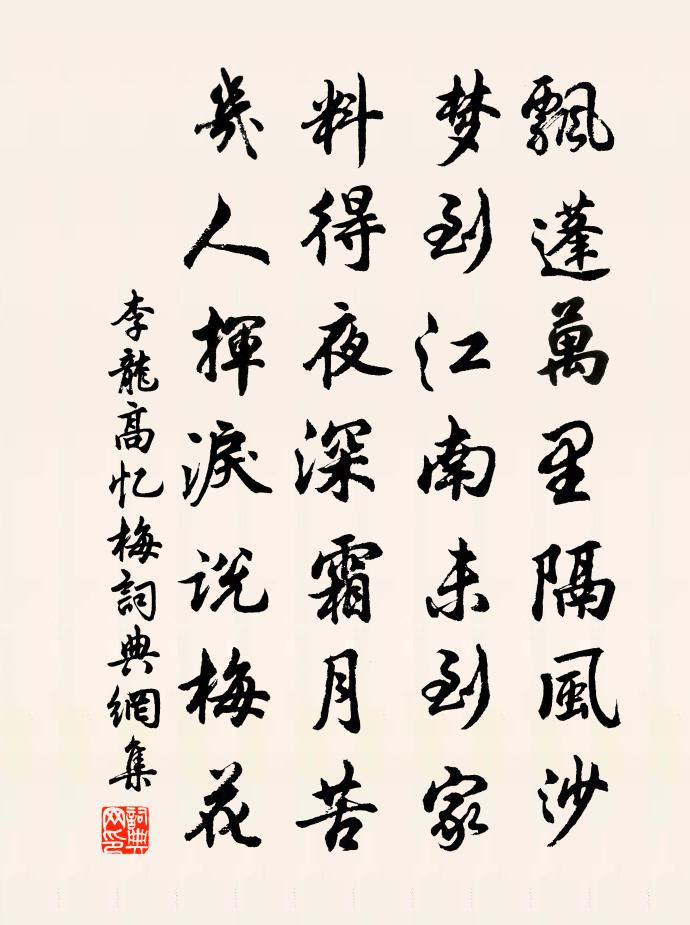 飄蓬萬里隔風沙
梦到江南未到家
料得夜深霜月苦
幾人揮淚説梅花
李龍高忆梅詞典網集
詞典網印